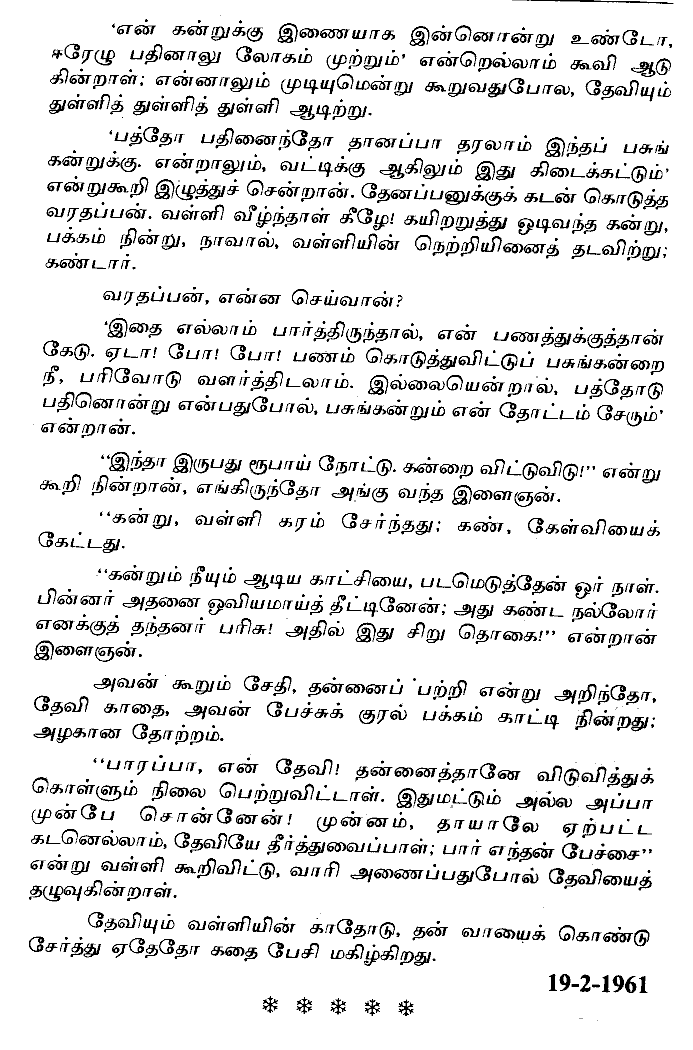 ‘என் கன்றுக்கு இணையாக இன்னொன்று உண்டோ,
ஈரேழு பதினாலு லோகம் முற்றும்’ என்றெல்லாம் கூவி ஆடு
கின்றாள்; என்னாலும் முடியுமென்று கூறுவதுபோல, தேவியும்
துள்ளித் துள்ளித் துள்ளி ஆடிற்று.
‘பத்தோ பதினைந்தோ தானப்பா தரலாம் இந்தப் பசுங்
கன்றுக்கு. என்றாலும், வட்டிக்கு ஆகிலும் இது கிடைக்கட்டும்’
என்றுகூறி இழுத்துச் சென்றான். தேனப்பனுக்குக் கடன் கொடுத்த
வரதப்பன். வள்ளி வீழ்ந்தாள் கீழே! கயிறறுத்து ஓடிவந்த கன்று,
பக்கம் நின்று, நாவால், வள்ளியின் நெற்றியினைத் தடவிற்று;
கண்டார்.
வரதப்பன், என்ன செய்வான்?
‘இதை எல்லாம் பார்த்திருந்தால், என் பணத்துக்குத்தான்
கேடு. ஏடா! போ! போ! பணம் கொடுத்துவிட்டுப் பசுங்கன்றை
நீ, பரிவோடு வளர்த்திடலாம். இல்லையென்றால், பத்தோடு
பதினொன்று என்பதுபோல், பசுங்கன்றும் என் தோட்டம் சேரும்’
என்றான்.
“இந்தா இருபது ரூபாய் நோட்டு. கன்றை விட்டுவிடு!” என்று
கூறி நின்றான், எங்கிருந்தோ அங்கு வந்த இளைஞன்.
“கன்று, வள்ளி கரம் சேர்ந்தது; கண், கேள்வியைக்
கேட்டது.
“கன்றும் நீயும் ஆடிய காட்சியை, படமெடுத்தேன் ஓர் நாள்.
பின்னர் அதனை ஓவியமாய்த் தீட்டினேன்; அது கண்ட நல்லோர்
எனக்குத் தந்தனர் பரிசு! அதில் இது சிறு தொகை!” என்றான்
இளைஞன்.
அவன் கூறும் சேதி, தன்னைப் பற்றி என்று அறிந்தோ,
தேவி காதை, அவன் பேச்சுக் குரல் பக்கம் காட்டி நின்றது;
அழகான தோற்றம்.
“பாரப்பா, என் தேவி! தன்னைத்தானே விடுவித்துக்
கொள்ளும் நிலை பெற்றுவிட்டாள். இதுமட்டும் அல்ல அப்பா
முன்பே சொன்னேன்! முன்னம், தாயாலே ஏற்பட்ட
கடனெல்லாம், தேவியே தீர்த்துவைப்பாள்; பார் எந்தன் பேச்சை”
என்று வள்ளி கூறிவிட்டு, வாரி அணைப்பதுபோல் தேவியைத்
தழுவுகின்றாள்.
தேவியும் வள்ளியின் காதோடு, தன் வாயைக் கொண்டு
சேர்த்து ஏதேதோ கதை பேசி மகிழ்கிறது.
19-2-1961